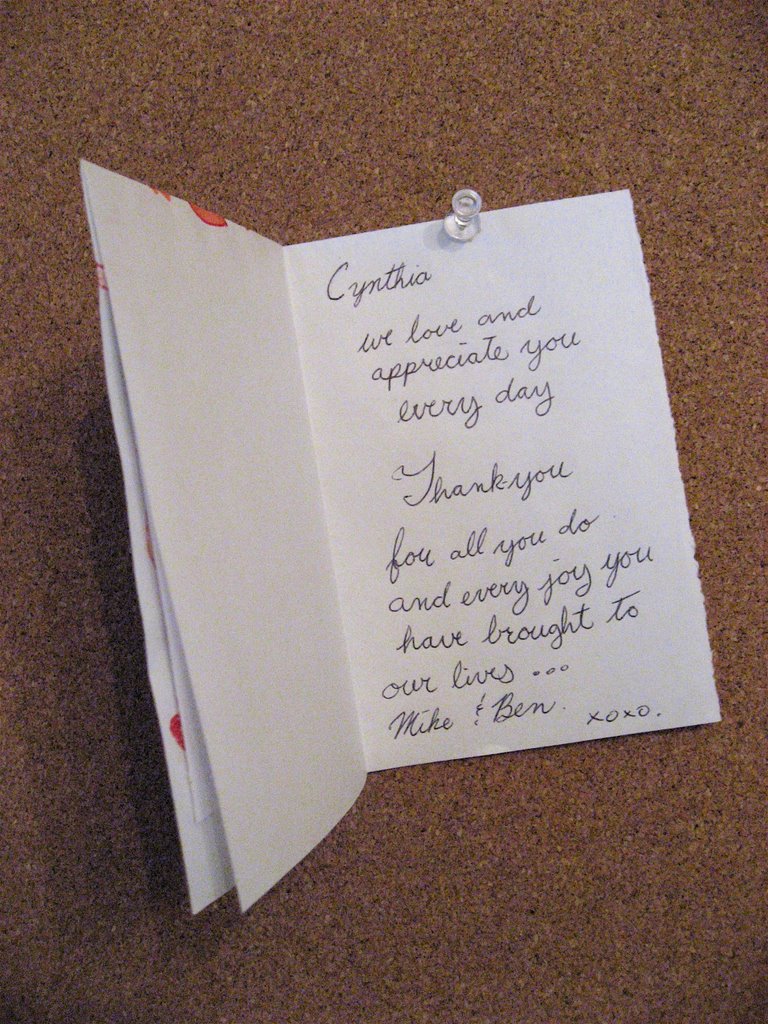 Cynthia
we love and
appreciate you
every day
Thank-you
for all you do
and every joy you
have brought to
our lives ...
Mike & Ben.
xoxo.